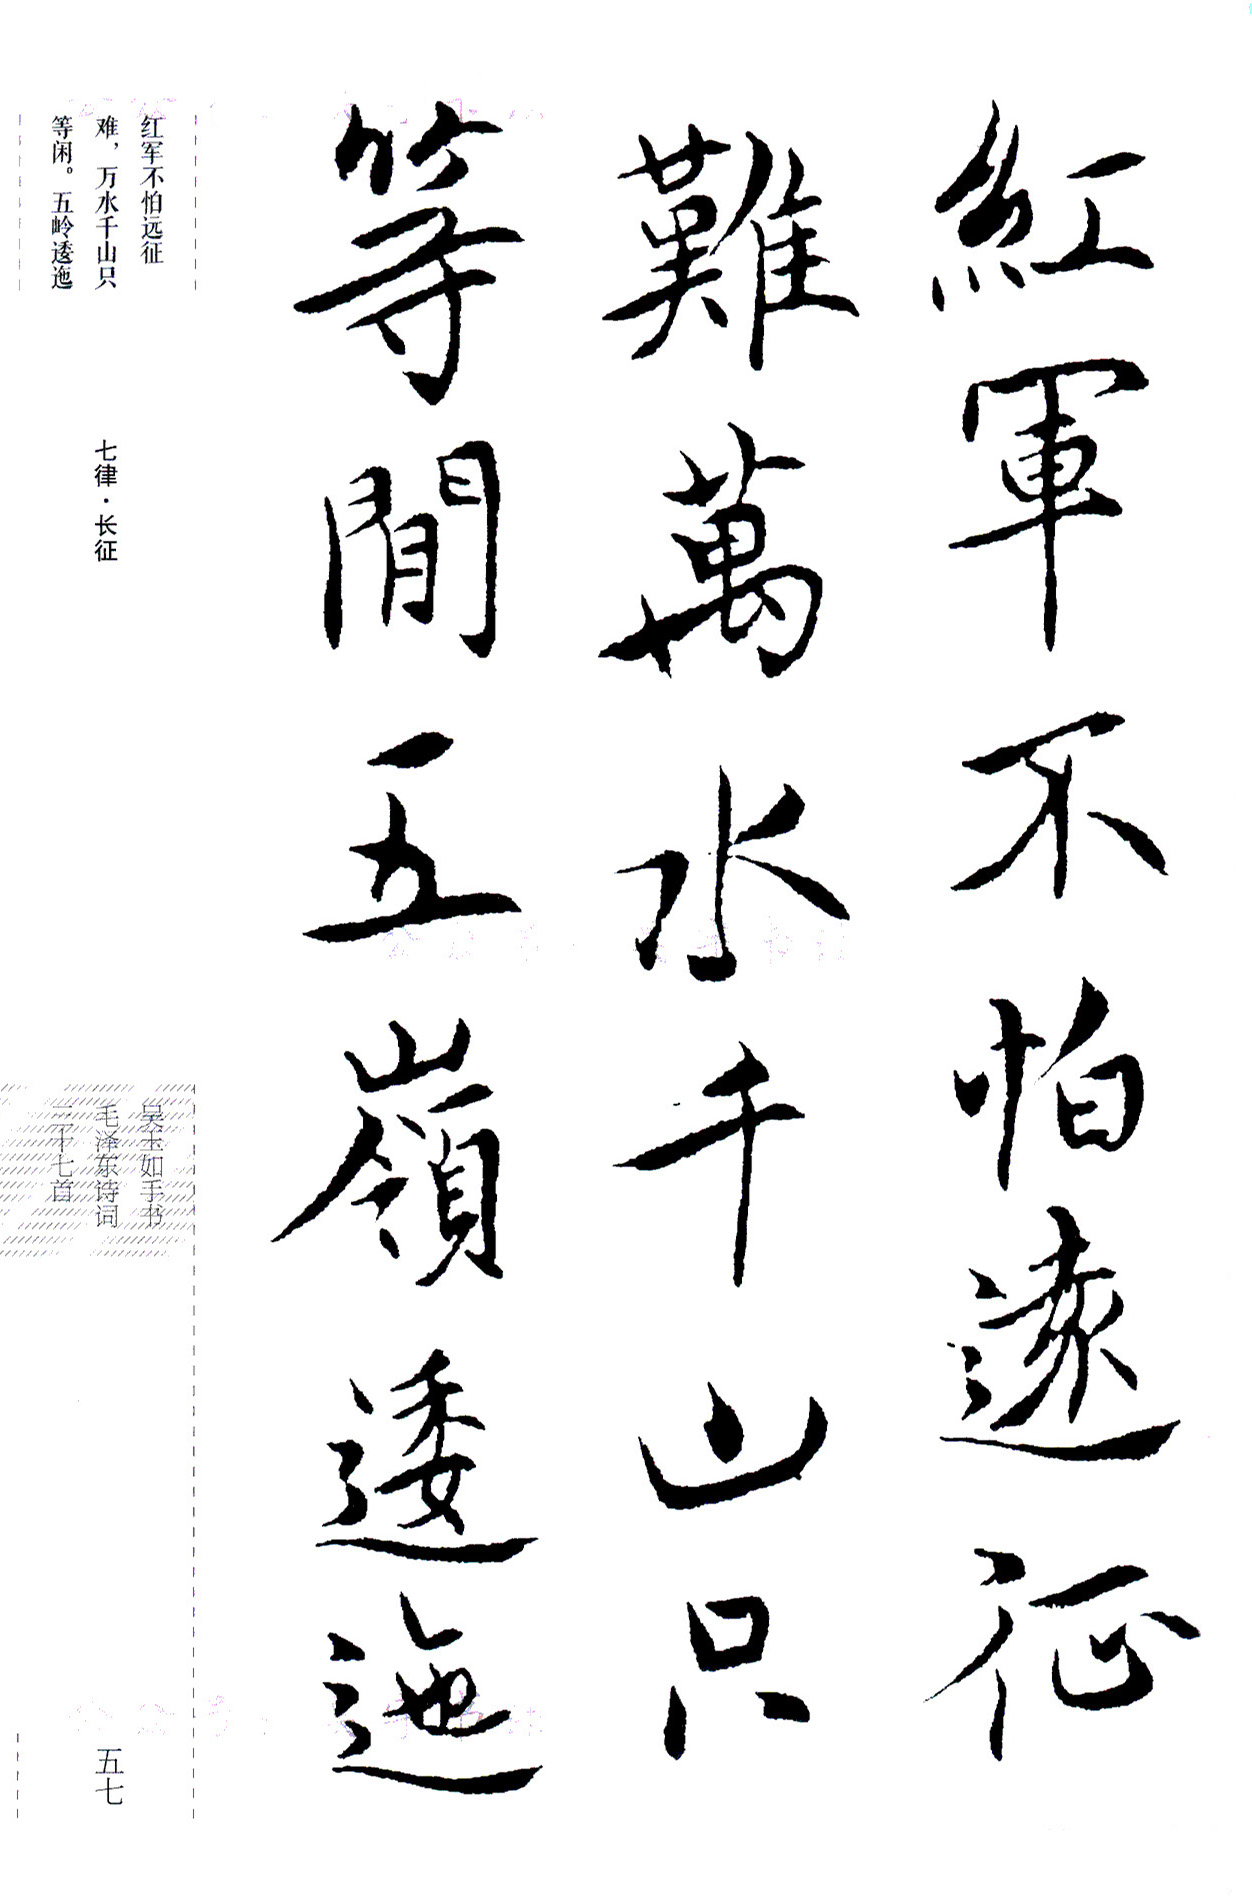 紅軍不怕遠征
難萬水千山只
等閒五嶺逶迤
红军不怕远征
难，万水千山只
等闲。五岭逶迤
七律·长征
吴玉如手书
毛泽东诗词
三十七首
五七